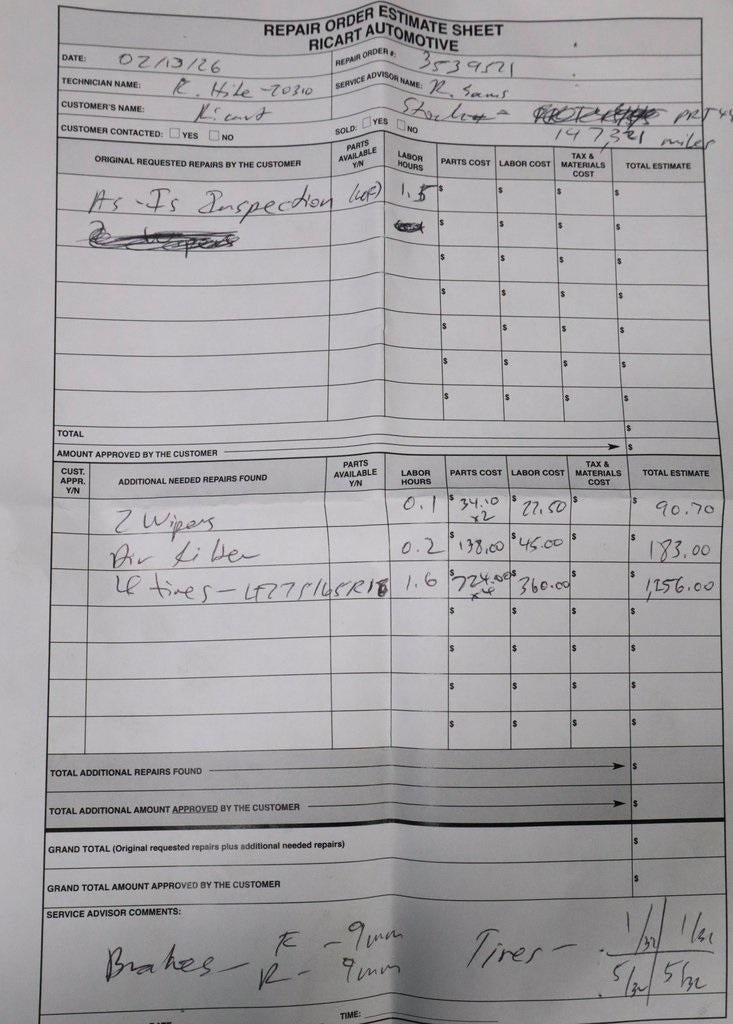 REPAIR ORDER ESTIMATE SHEET
RICART AUTOMOTIVE
DATE: 02/13/26 REPAIR ORDER #: 3539521
TECHNICIAN NAME: R. Hite - 20310 SERVICE ADVISOR NAME: R. Sams
CUSTOMER'S NAME: Ricart
CUSTOMER CONTACTED: YES NO SOLD: YES NO 147,321 miles
ORIGINAL REQUESTED REPAIRS BY THE CUSTOMER PARTS AVAILABLE Y/N LABOR HOURS PARTS COST LABOR COST TAX & MATERIALS COST TOTAL ESTIMATE
As-Is Inspection (LOF) 1.5 $ $ $ $
$ $ $ $
$ $ $ $
$ $ $ $
$ $ $ $
$ $ $ $
$ $ $ $
TOTAL $
AMOUNT APPROVED BY THE CUSTOMER $
CUST. APPR. Y/N ADDITIONAL NEEDED REPAIRS FOUND PARTS AVAILABLE Y/N LABOR HOURS PARTS COST LABOR COST TAX & MATERIALS COST TOTAL ESTIMATE
2 Wipers 0.1 $34.10 x2 $22.50 $ $90.70
Air filter 0.2 $138.00 $45.00 $ $183.00
4 tires - LT275/65R18 1.6 $224.00 x4 $360.00 $ $1,256.00
$ $ $ $
$ $ $ $
$ $ $ $
$ $ $ $
TOTAL ADDITIONAL REPAIRS FOUND $
TOTAL ADDITIONAL AMOUNT APPROVED BY THE CUSTOMER $
GRAND TOTAL (Original requested repairs plus additional needed repairs) $
GRAND TOTAL AMOUNT APPROVED BY THE CUSTOMER $
SERVICE ADVISOR COMMENTS:
Brakes - F - 9mm Tires - 1/32 1/32
R - 9mm 5/32 5/32
TIME: